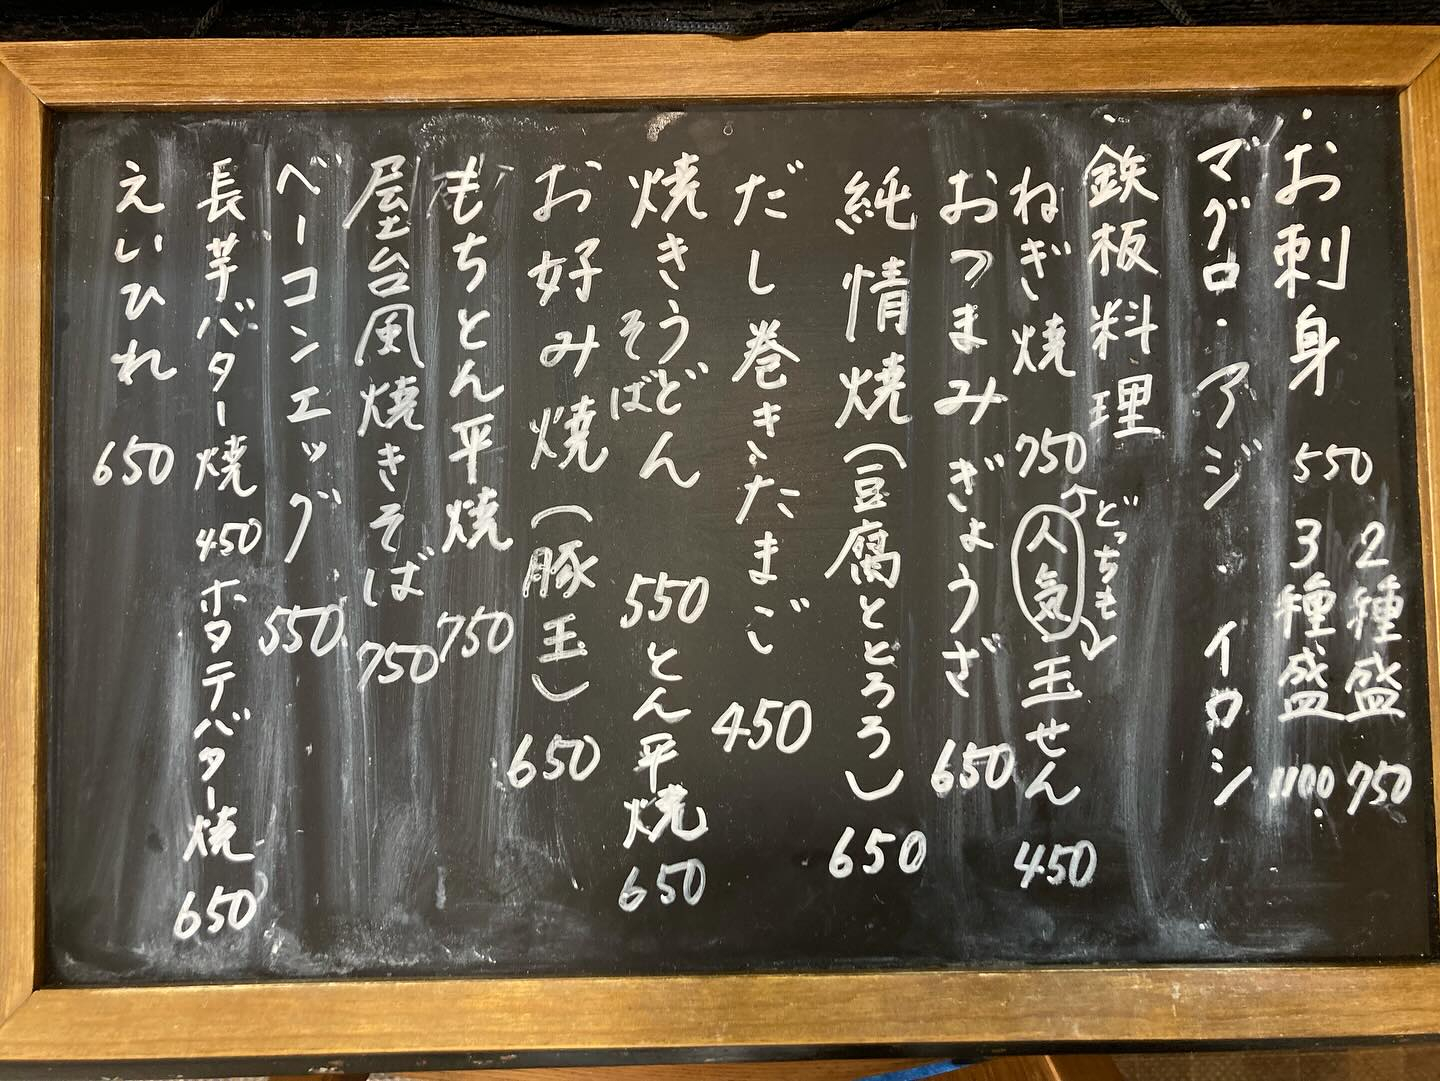 ・お刺身 550 2種盛 750
3種盛 1100
マグロ・アジ イワシ
・鉄板料理
どっちも
ねぎ焼 750 人気 玉せん 450
おつまみぎょうざ 650
純情焼(豆腐ととろろ) 650
だし巻きたまご 450
焼きうどん 550 とん平焼 650
そば
お好み焼(豚玉) 650
もちとん平焼 750
屋台風焼きそば 750
ベーコンエッグ 550
長芋バター焼 450 ホタテバター焼 650
えいひれ 650